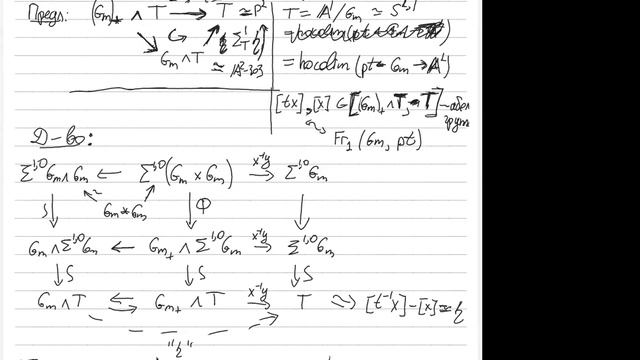 Предл: (𝔾m)₊ ∧ T → T ≃ P¹
𝔾m ∧ T
Σ_T η
≃ A²-{0}
T = A¹/𝔾m ≃ S^{2,1}
= hocolim(pt ← 𝔾m → A¹)
[tx], [x] ∈ [(𝔾m)₊ ∧ T, T]
Fr₁(𝔾m, pt)
Д-во:
Σ^{1,0} 𝔾m ∧ 𝔾m ← Σ^{1,0}(𝔾m × 𝔾m) x⁻¹y → Σ^{1,0} 𝔾m
𝔾m * 𝔾m
S Φ
𝔾m ∧ Σ^{1,0} 𝔾m ← 𝔾m₊ ∧ Σ^{1,0} 𝔾m x⁻¹y → Σ^{1,0} 𝔾m
S S S
𝔾m ∧ T ⇆ 𝔾m₊ ∧ T x⁻¹y → T ⇒ [t⁻¹x] - [x] = η
"η"